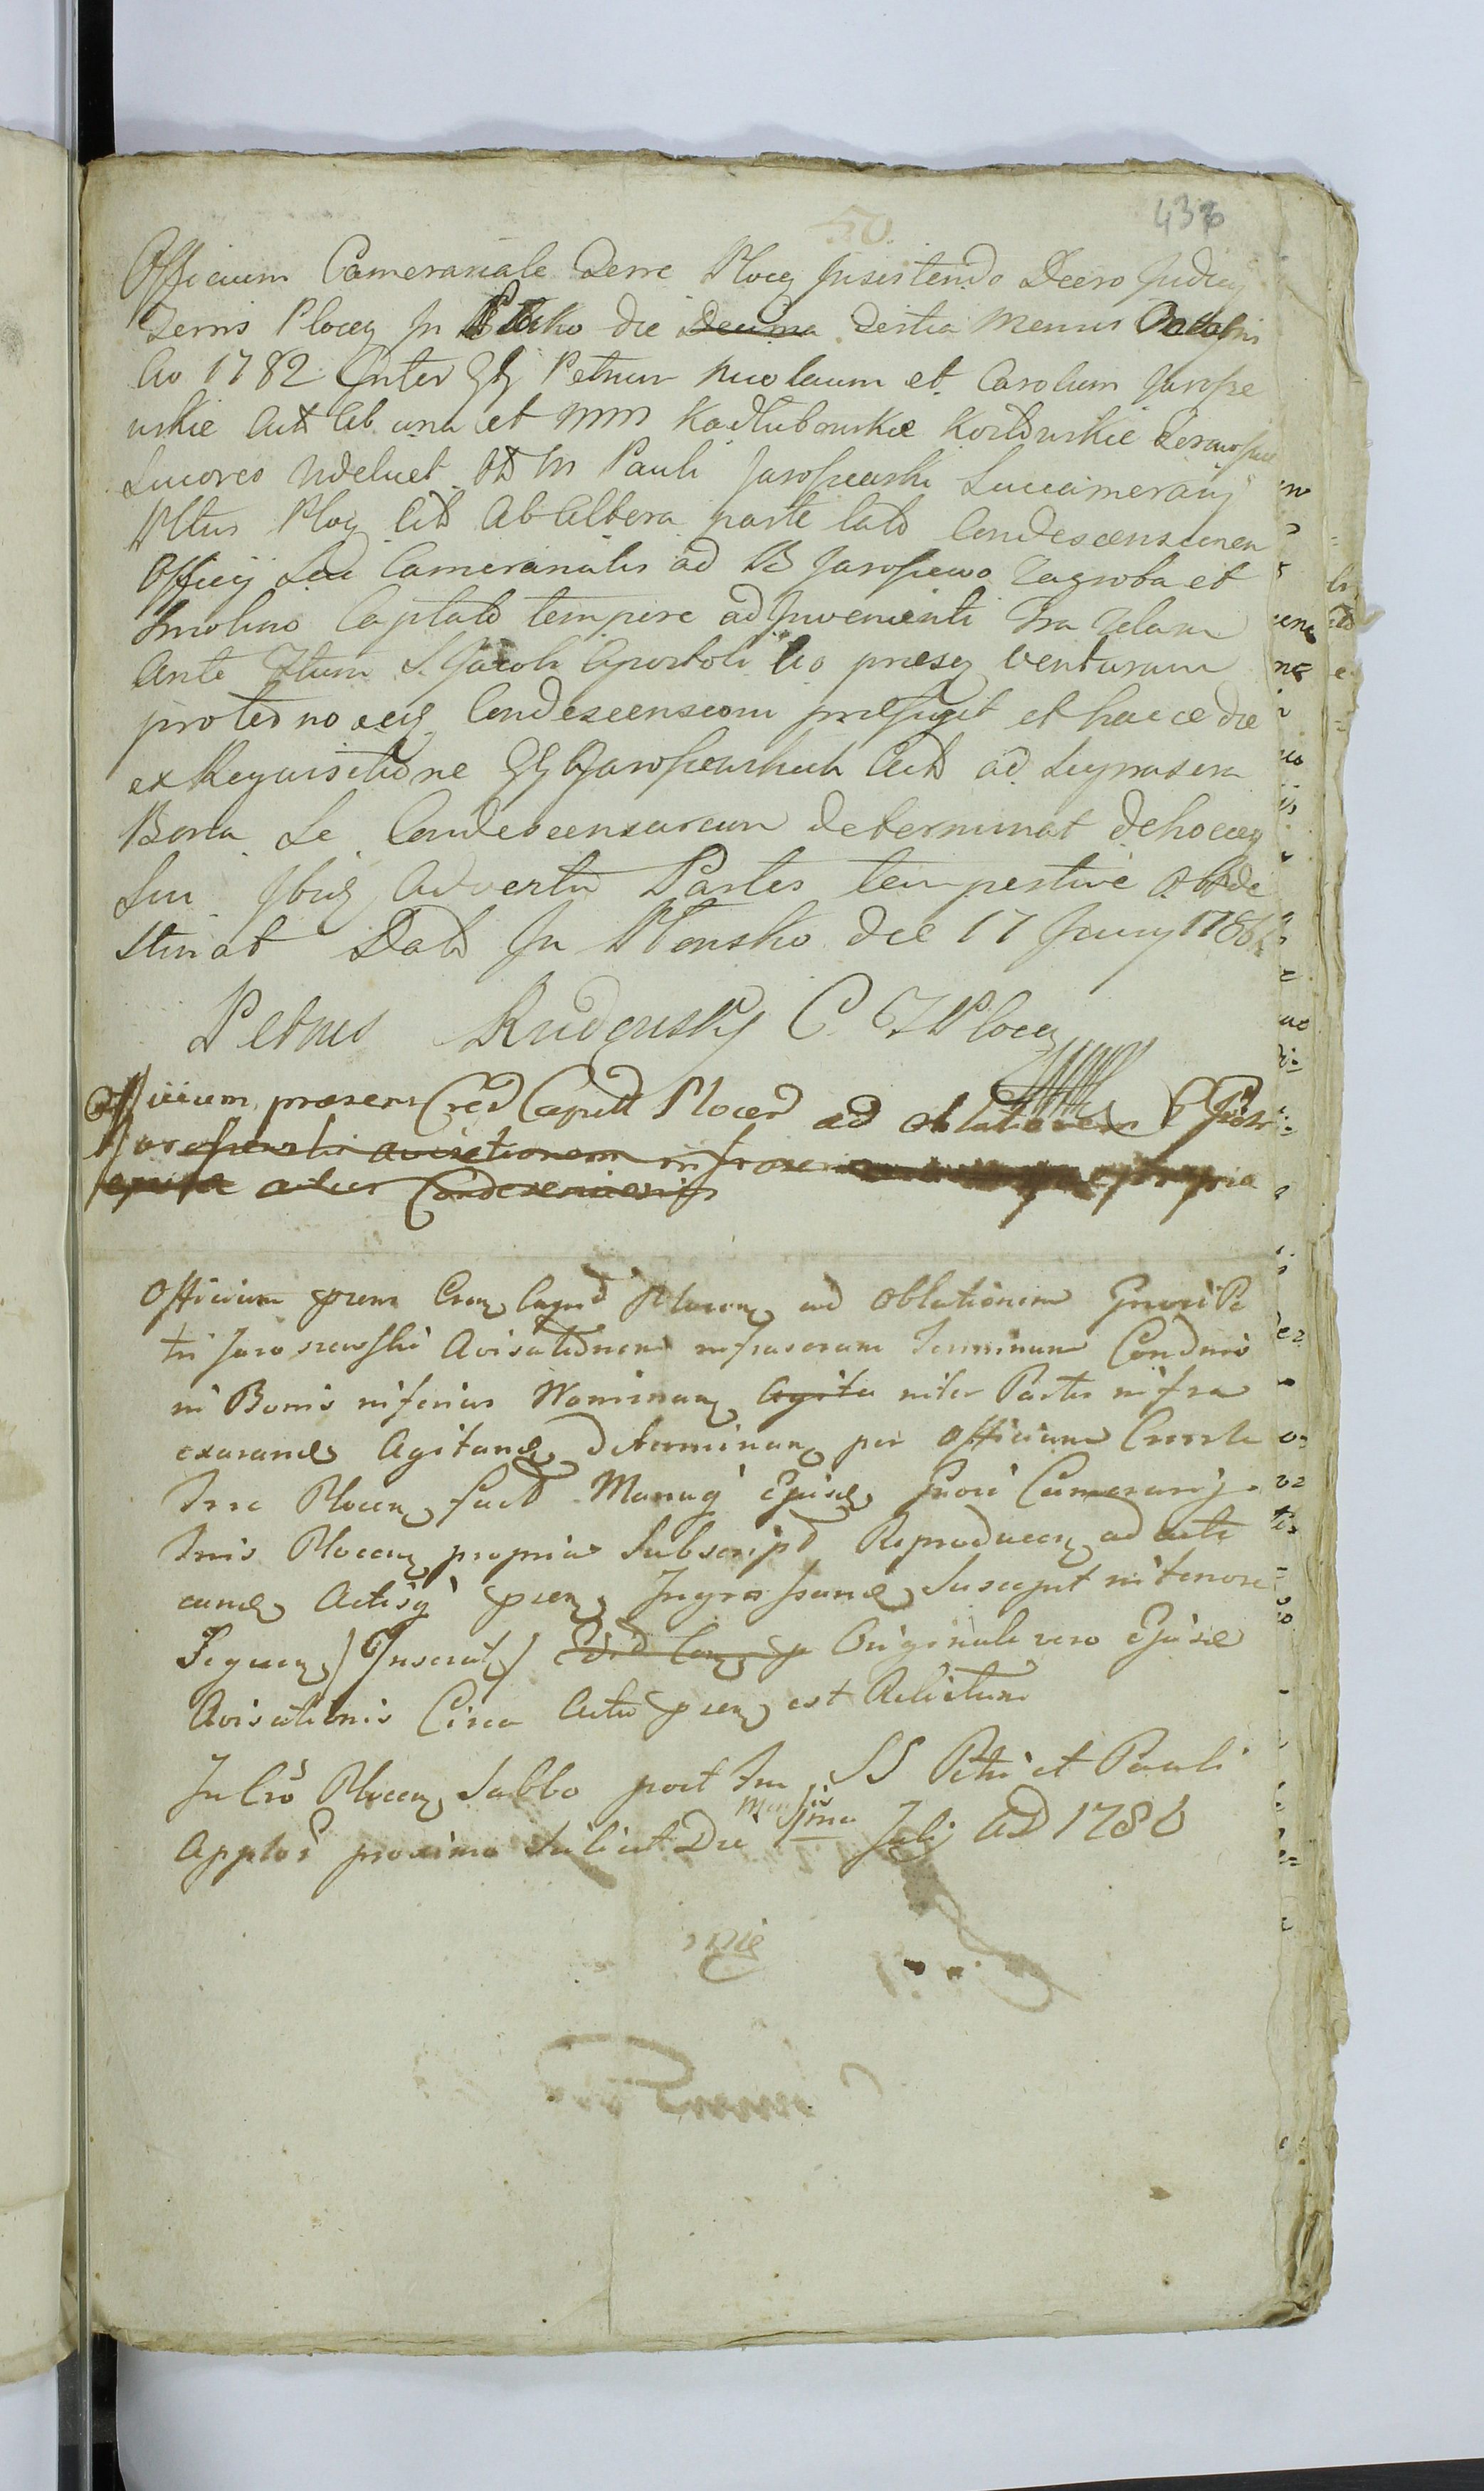 436
Officium Camerariale Terre Plocen Insistendo Decro Judicy
Terris Plocen In Płocko die Decima Tertia Mensis Octobris
Ao 1782 Inter GG Petrum Nicolaum et Carolum Jarosze
wskie Act Ab una et MM Kadłubowskie Kozłowskie
Sucores Ndelicet Od M Pauli Jaroszewski Succamerarij
Citt Ab Altera parte lato Condescensionem
Officij Sui Camerarialis ad B Jaroszewo Zagroba et
Smolino Captato tempore ad Inveniente
Ante Ftum S. Jacobi Apostoli Ao praesen venturam
pro tno Condescensioni praefigit et hacce die
ex Requisitione GG Jaroszewskich Act ad Supraser
Bona Se Condescensurum determinat de hocce
Suu Ibiq Adventu Partes tempestive Obtde
stinat Datt In Płonsko die 17 Juny 1786
Petrus Rudowsky C. T Plocen
Officium praesens Cred Capitt Plocen ad oblationem G Petri
Jaroszewski avisationem infrascr propria
inter Condescensionis
Officium praens Cren Capitt Plocen ad Oblationem Grosi Pe
tri Jaroszewski Avisationem infrascram Terminum Condnis
in Bonis inferius Nominan Agita inter Partes infra
exarand Agitand determinan per Officium Cmrle
Trre Plocen fact Manuq Ejusd Grosi Camerarij
Trris Plocen propria Subscript Reproducen ad acti
cand Actisq praen Ingrossand Suscepit in tenore
Sequen / Inserat / Originale vero Ejusd
Avisationis Circa Acta praen est Relictum
In Cro Plocen Sabbo post Ftm SS Petri et Pauli
Applor proximo Silicet Die Mensis 1ma Julij AD 1786